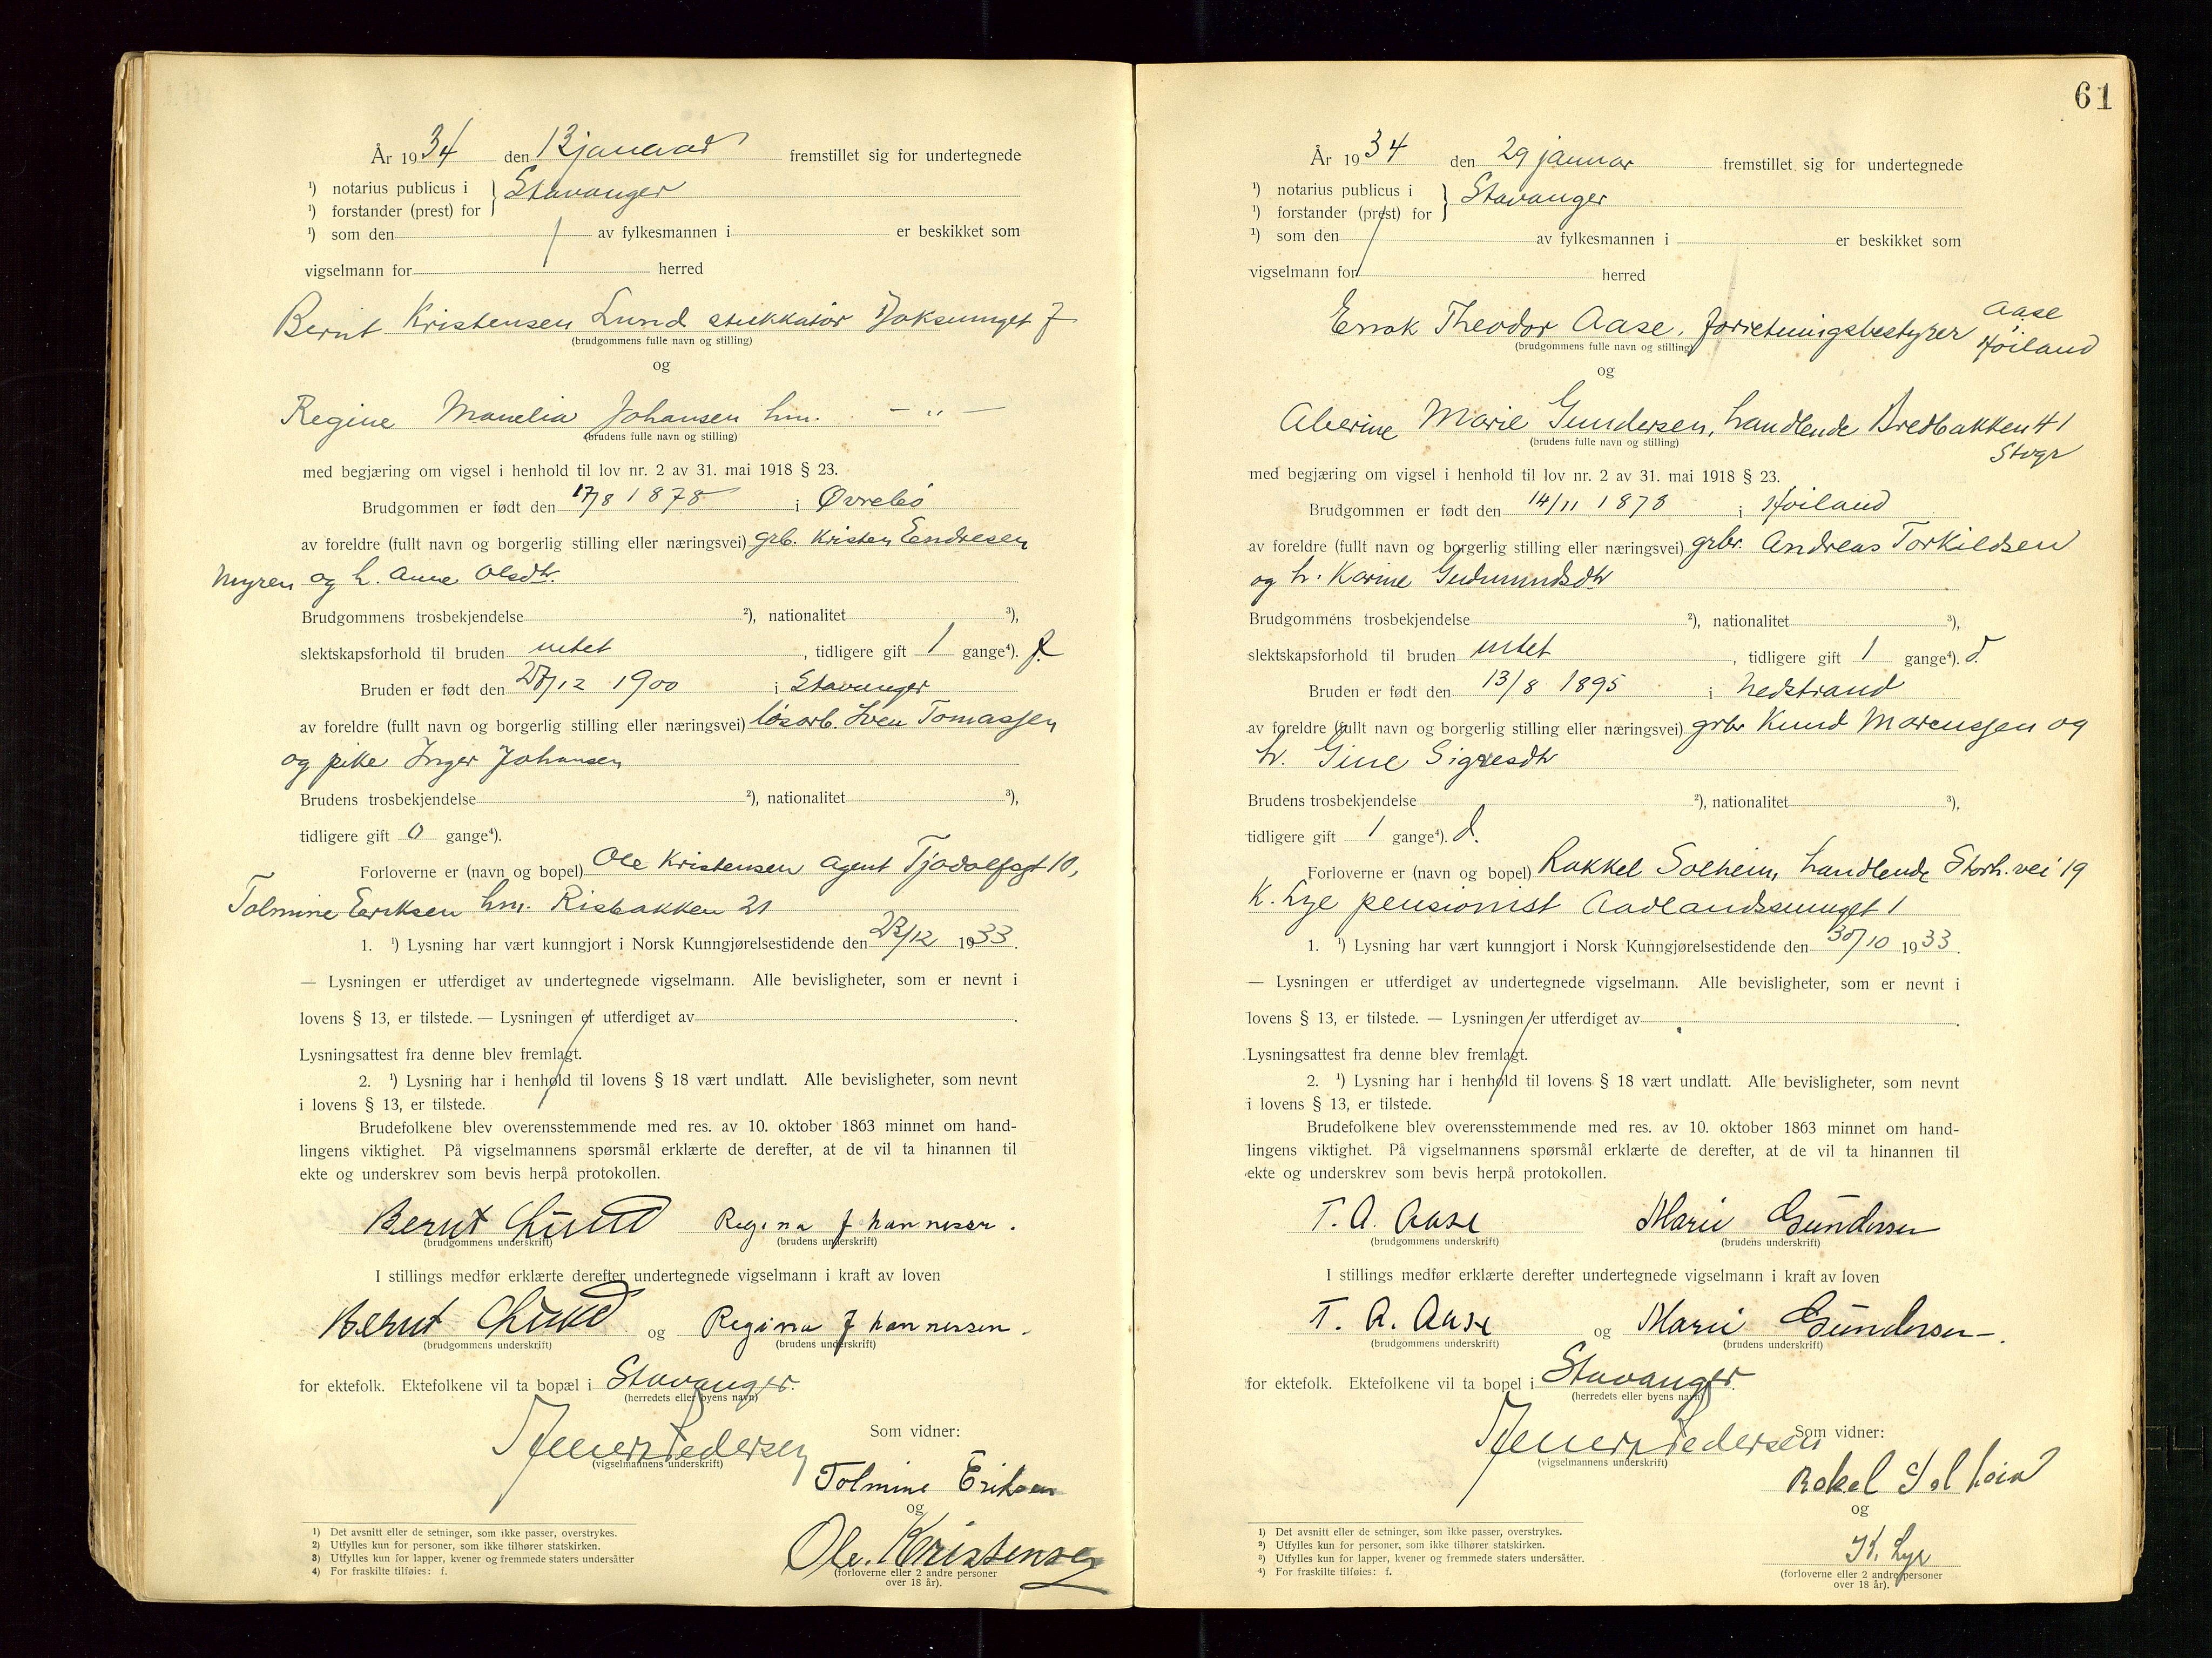 År 1934 den 13 januar fremstillet sig for undertegnede
¹) notarius publicus i } Stavanger
¹) forstander (prest) for
¹) som den av fylkesmannen i er beskikket som
vigselmann for herred
Bernt Kristensen Lund stukkatør
(brudgommens fulle navn og stilling)
og
Regine Johansen hm. — „ —
(brudens fulle navn og stilling)
med begjæring om vigsel i henhold til lov nr. 2 av 31. mai 1918 § 23.
Brudgommen er født den 17/8 1878 i Øvrebø
av foreldre (fullt navn og borgerlig stilling eller næringsvei) grb. Kristen Endresen
Myren og h. Ane Olsdtr.
Brudgommens trosbekjendelse ²), nationalitet ³),
slektskapsforhold til bruden intet , tidligere gift 1 gange⁴). f.
Bruden er født den 28/12 1900 i Stavanger
av foreldre (fullt navn og borgerlig stilling eller næringsvei) løsarb. Sven Tomassen
og pike Inger Johansen
Brudens trosbekjendelse ²), nationalitet ³),
tidligere gift 0 gange⁴).
Forloverne er (navn og bopel) Ole Kristensen agent Tjodolfsgt 10,
Tolmine Eriksen hm. Risbakken 21
1. ¹) Lysning har vært kunngjort i Norsk Kunngjørelsestidende den 23/12 1933.
— Lysningen er utferdiget av undertegnede vigselmann. Alle bevisligheter, som er nevnt i
lovens § 13, er tilstede. — Lysningen er utferdiget av .
Lysningsattest fra denne blev fremlagt.
2. ¹) Lysning har i henhold til lovens § 18 vært undlatt. Alle bevisligheter, som nevnt
i lovens § 13, er tilstede.
Brudefolkene blev overensstemmende med res. av 10. oktober 1863 minnet om hand-
lingens viktighet. På vigselmannens spørsmål erklærte de derefter, at de vil ta hinannen til
ekte og underskrev som bevis herpå protokollen.
Bernt Lund Regina Johannesen.
(brudgommens underskrift) (brudens underskrift)
I stillings medfør erklærte derefter undertegnede vigselmann i kraft av loven
Bernt Lund og Regina Johannessen.
(brudgommens underskrift) (brudens underskrift)
for ektefolk. Ektefolkene vil ta bopæl i Stavanger.
(herredets eller byens navn)
Som vidner:
Pedersen
(vigselmannens underskrift)
Tolmine Eriksen
og
Ole Kristensen
(forloverne eller 2 andre personer
over 18 år).
1) Det avsnitt eller de setninger, som ikke passer, overstrykes.
2) Utfylles kun for personer, som ikke tilhører statskirken.
3) Utfylles kun for lapper, kvener og fremmede staters undersåtter
4) For fraskilte tilføies: f.
61
År 1934 den 29 januar fremstillet sig for undertegnede
¹) notarius publicus i } Stavanger
¹) forstander (prest) for
¹) som den av fylkesmannen i er beskikket som
vigselmann for herred
Theodor Aase, forretningsbestyrer Aase
Høiland
(brudgommens fulle navn og stilling)
og
Marie Gundersen, handlende Bredbakken 41
Stvgr
(brudens fulle navn og stilling)
med begjæring om vigsel i henhold til lov nr. 2 av 31. mai 1918 § 23.
Brudgommen er født den 14/11 1878 i Høiland
av foreldre (fullt navn og borgerlig stilling eller næringsvei) grbr. Andreas Torkildsen
og h. Karine Gudmundsdtr
Brudgommens trosbekjendelse ²), nationalitet ³),
slektskapsforhold til bruden intet , tidligere gift 1 gange⁴). d.
Bruden er født den 13/8 1895 i Nedstrand
av foreldre (fullt navn og borgerlig stilling eller næringsvei) grbr Knud Marcussen og
h. Gine
Brudens trosbekjendelse ²), nationalitet ³),
tidligere gift 1 gange⁴). d.
Forloverne er (navn og bopel) Rakkel Solheim, handlende Storh. vei 19
K. Lye pensionist Aadlandssmuget 1
1. ¹) Lysning har vært kunngjort i Norsk Kunngjørelsestidende den 30/10 1933.
— Lysningen er utferdiget av undertegnede vigselmann. Alle bevisligheter, som er nevnt i
lovens § 13, er tilstede. — Lysningen er utferdiget av .
Lysningsattest fra denne blev fremlagt.
2. ¹) Lysning har i henhold til lovens § 18 vært undlatt. Alle bevisligheter, som nevnt
i lovens § 13, er tilstede.
Brudefolkene blev overensstemmende med res. av 10. oktober 1863 minnet om hand-
lingens viktighet. På vigselmannens spørsmål erklærte de derefter, at de vil ta hinannen til
ekte og underskrev som bevis herpå protokollen.
T. A. Aase Marie Gundersen
(brudgommens underskrift) (brudens underskrift)
I stillings medfør erklærte derefter undertegnede vigselmann i kraft av loven
T. A. Aase og Marie Gundersen.
(brudgommens underskrift) (brudens underskrift)
for ektefolk. Ektefolkene vil ta bopel i Stavanger.
(herredets eller byens navn)
Som vidner:
Pedersen
(vigselmannens underskrift)
Rakel Solheim
og
K. Lye
(forloverne eller 2 andre personer
over 18 år).
1) Det avsnitt eller de setninger, som ikke passer, overstrykes.
2) Utfylles kun for personer, som ikke tilhører statskirken.
3) Utfylles kun for lapper, kvener og fremmede staters undersåtter.
4) For fraskilte tilføies: f.